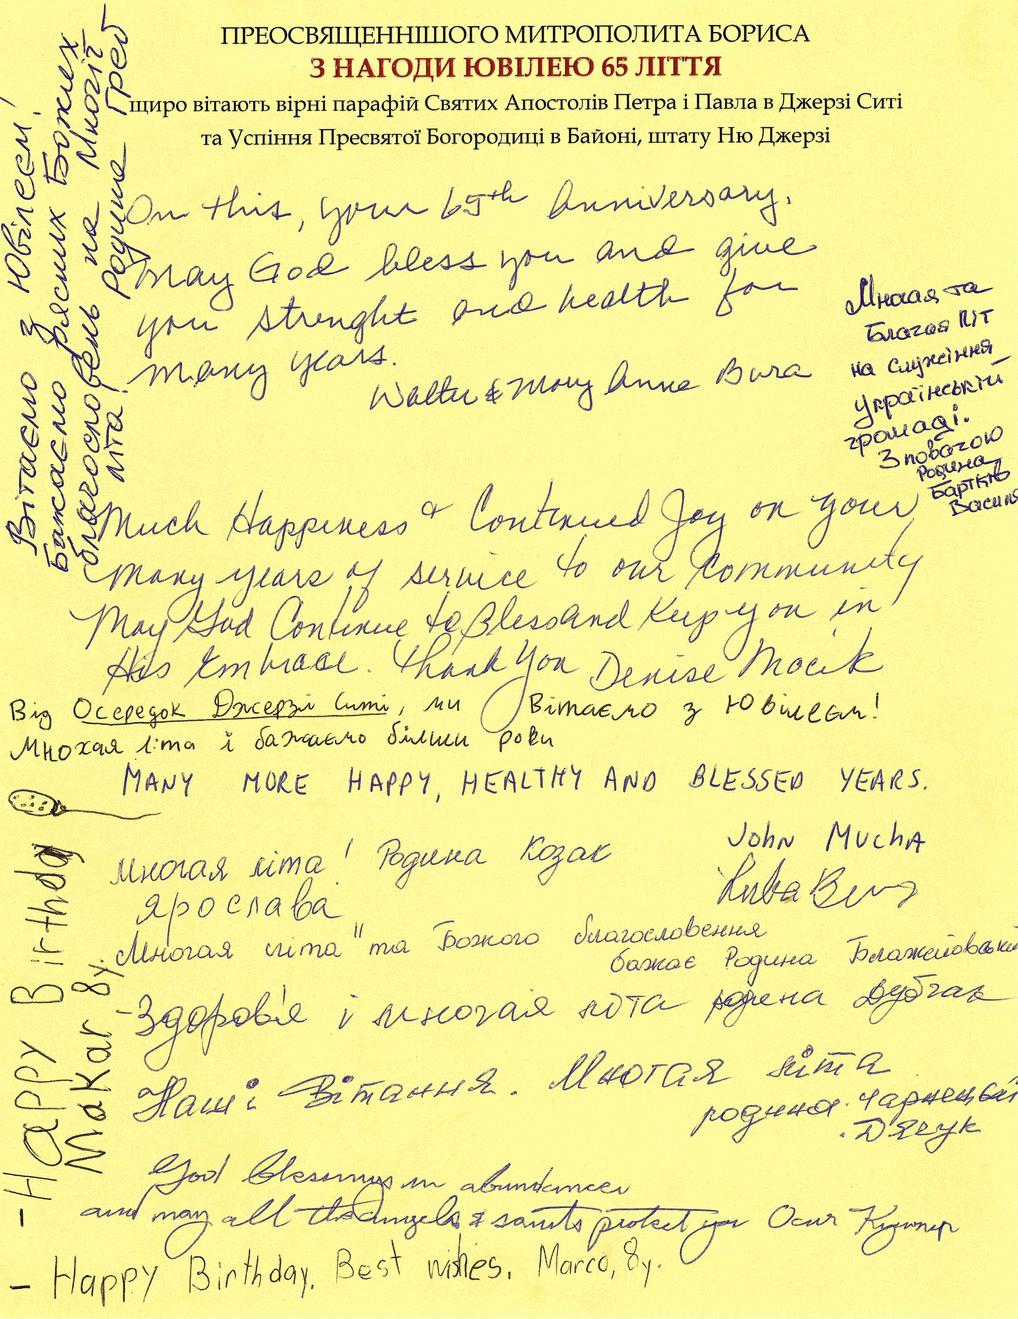 ПРЕОСВЯЩЕННІШОГО МИТРОПОЛИТА БОРИСА
З НАГОДИ ЮВІЛЕЮ 65 ЛІТТЯ
щиро вітають вірні парафій Святих Апостолів Петра і Павла в Джерзі Ситі
та Успіння Пресвятої Богородиці в Байоні, штату Ню Джерзі
Вітаємо з Ювілеєм!
Бажаємо рясних Божих
благословень на многії
літа! Родина Греб
On this, your 65th Anniversary.
May God bless you and give
you strenght and health for
many years.
Walter & Mary Anne Bura
Многая та
Благая літ
на служіння
Українській
громаді.
З повагою
Родина
Василь
Much Happiness & Continued Joy on your
many years of service to our Community
May God Continue to Bless and Keep you in
His Embrace. Thank You Denise Mocik
Від Осередок Джерзі Ситі, ми Вітаємо з Ювілеєм!
Мнохая літа і бажаємо більши роки
MANY MORE HAPPY, HEALTHY AND BLESSED YEARS.
JOHN MUCHA
Многая літа! Родина Козак
Ярослава
Многая літа" та Божого благословення
бажає Родина
Здоров'я і многая літа родена Дубчак
Наші Вітання. Многая літа
родина Чарнецькі
Дячук
God blessings in abundances
and may all the angels & saints protect you
- Happy Birthday
Makar 8y.
- Happy Birthday. Best wishes. Marco, 8y.